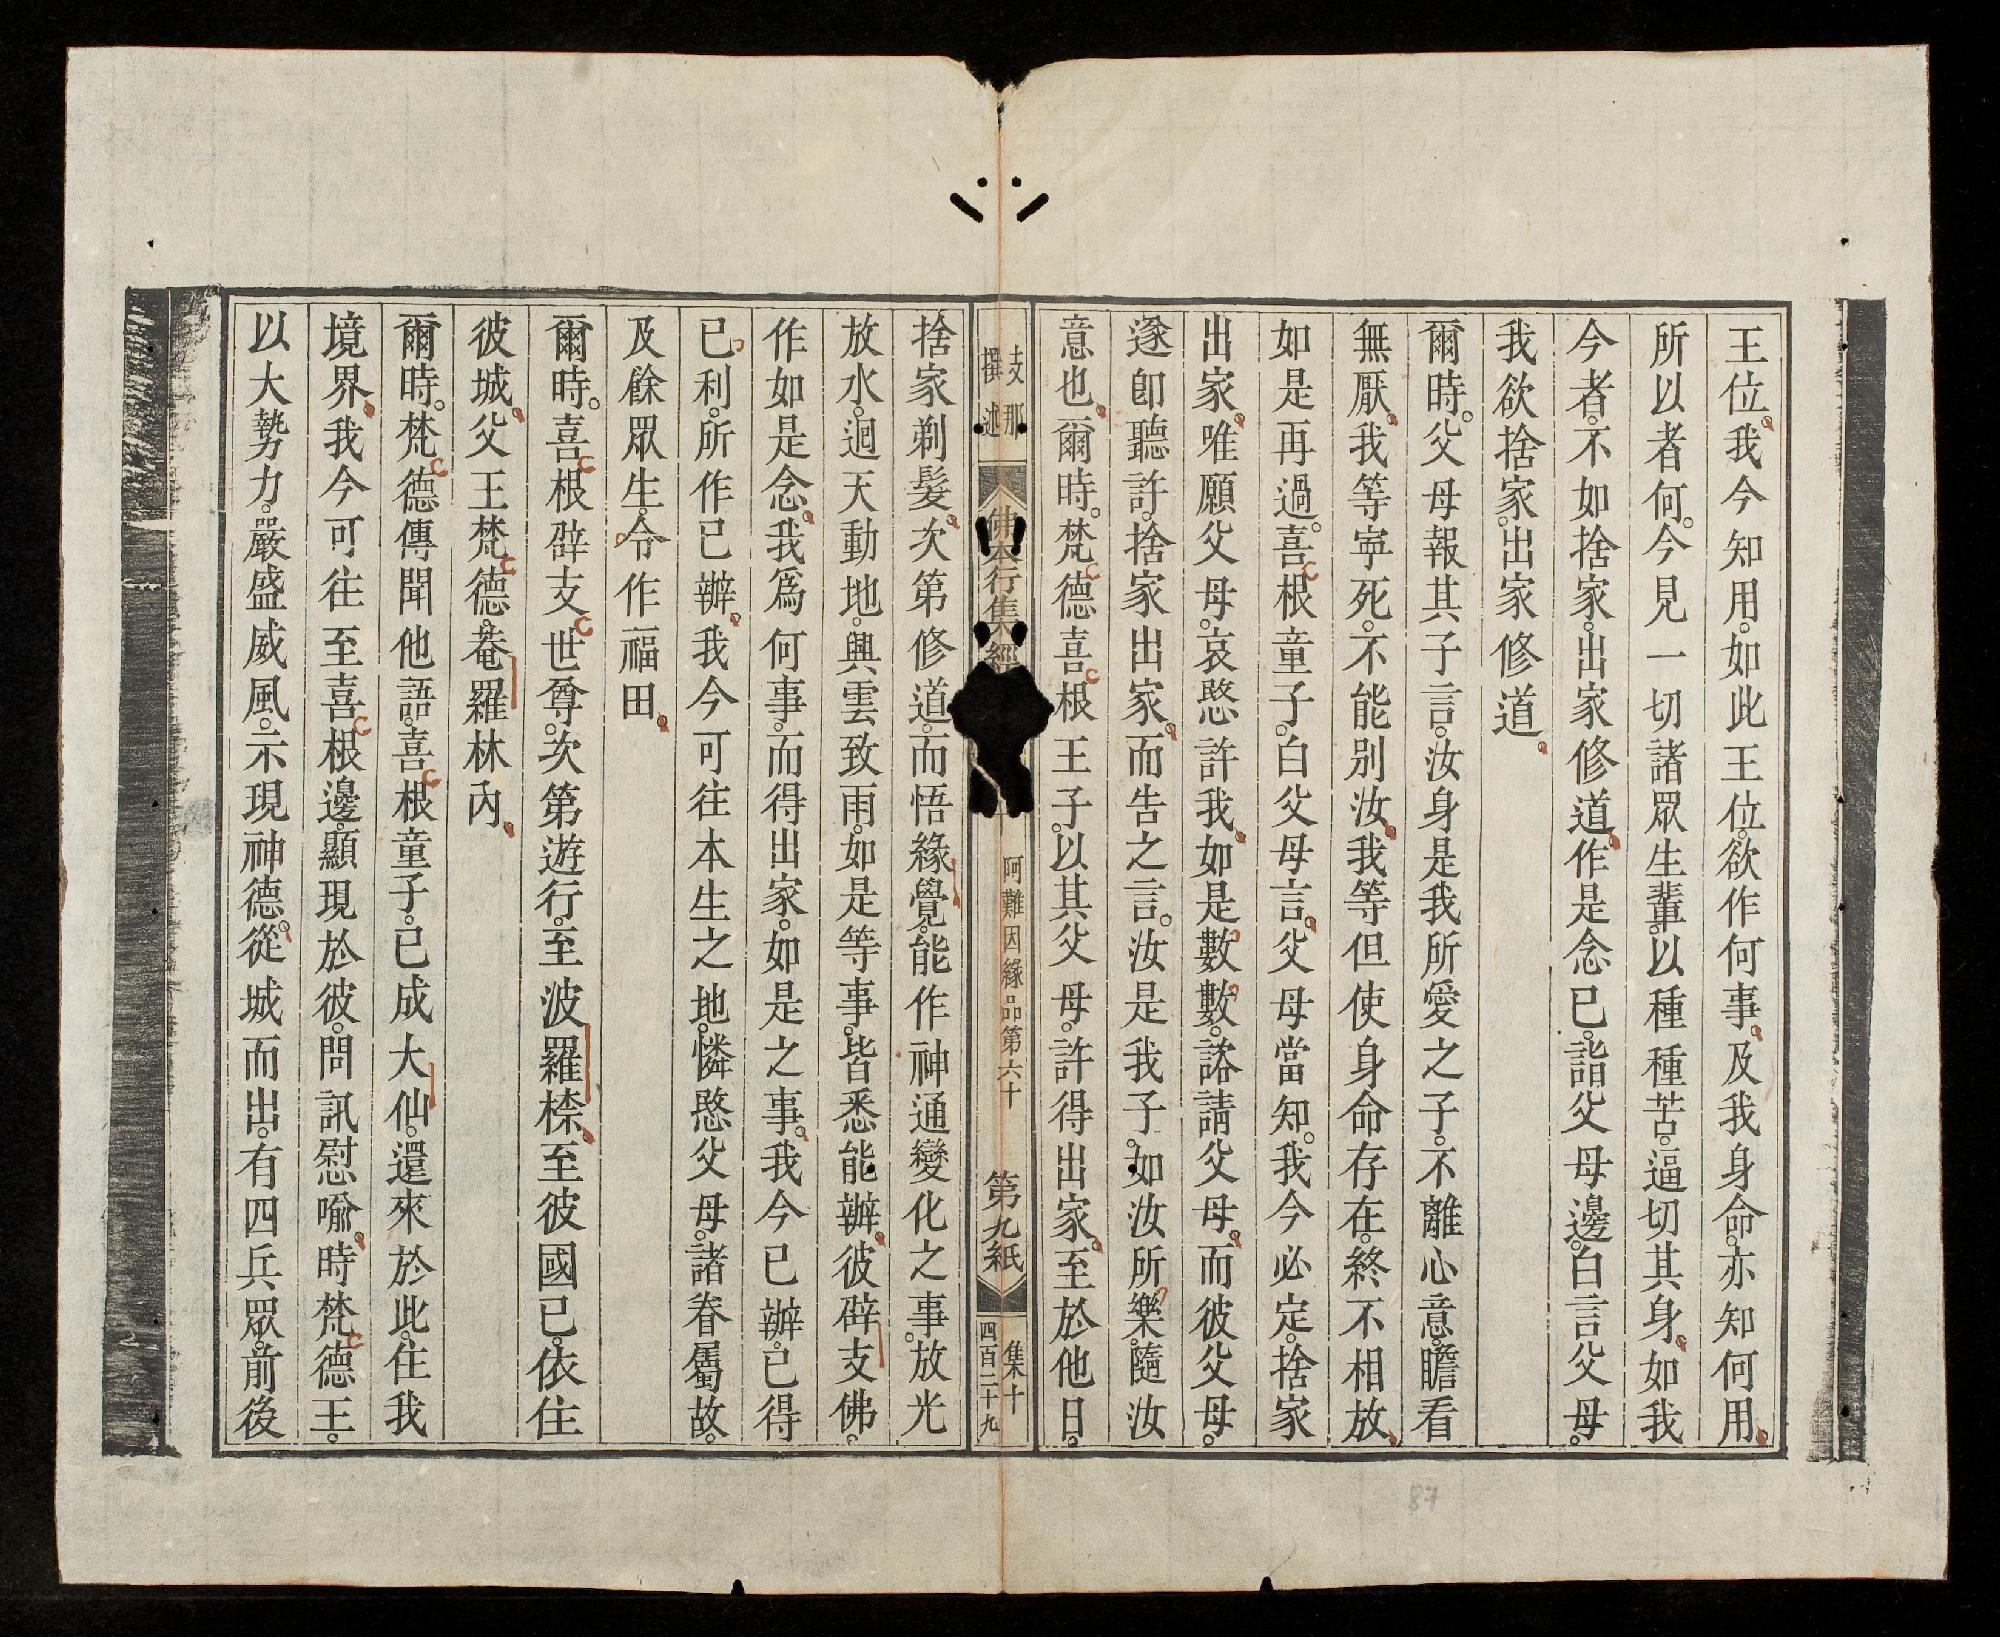 王位。我今知用。如此王位。欲作何事。及我身命。亦知何用。
所以者何。今見一切諸眾生輩。以種種苦。逼切其身。如我
今者。不如捨家。出家修道。作是念已。詣父母邊。白言父母。
我欲捨家。出家修道。
爾時。父母報其子言。汝身是我所愛之子。不離心意。瞻看
無厭。我等寧死。不能別汝。我等但使身命存在。終不相放。
如是再過。喜根童子。白父母言。父母當知。我今必定。捨家
出家。唯願父母。哀愍許我。如是數數。諮請父母。而彼父母。
遂卽聽許。捨家出家。而告之言。汝是我子。如汝所樂。隨汝
意也。爾時。梵德喜根王子。以其父母。許得出家。至於他日。
支那
撰述
佛本行集經
阿難因緣品第六十
第九紙
集十
四百二十九
捨家剃髮。次第修道。而悟緣覺。能作神通變化之事。放光
放水。迴天動地。興雲致雨。如是等事。皆悉能辦。彼辟支佛。
作如是念。我爲何事。而得出家。如是之事。我今已辦。已得
已利。所作已辦。我今可往本生之地。憐愍父母。諸眷屬故。
及餘眾生。令作福田。
爾時。喜根辟支世尊。次第遊行。至波羅㮈。至彼國已。依住
彼城。父王梵德。菴羅林內。
爾時。梵德傳聞他語。喜根童子。已成大仙。還來於此。住我
境界。我今可往至喜根邊。顯現於彼。問訊慰喩。時梵德王。
以大勢力。嚴盛威風。示現神德。從城而出。有四兵眾。前後
87